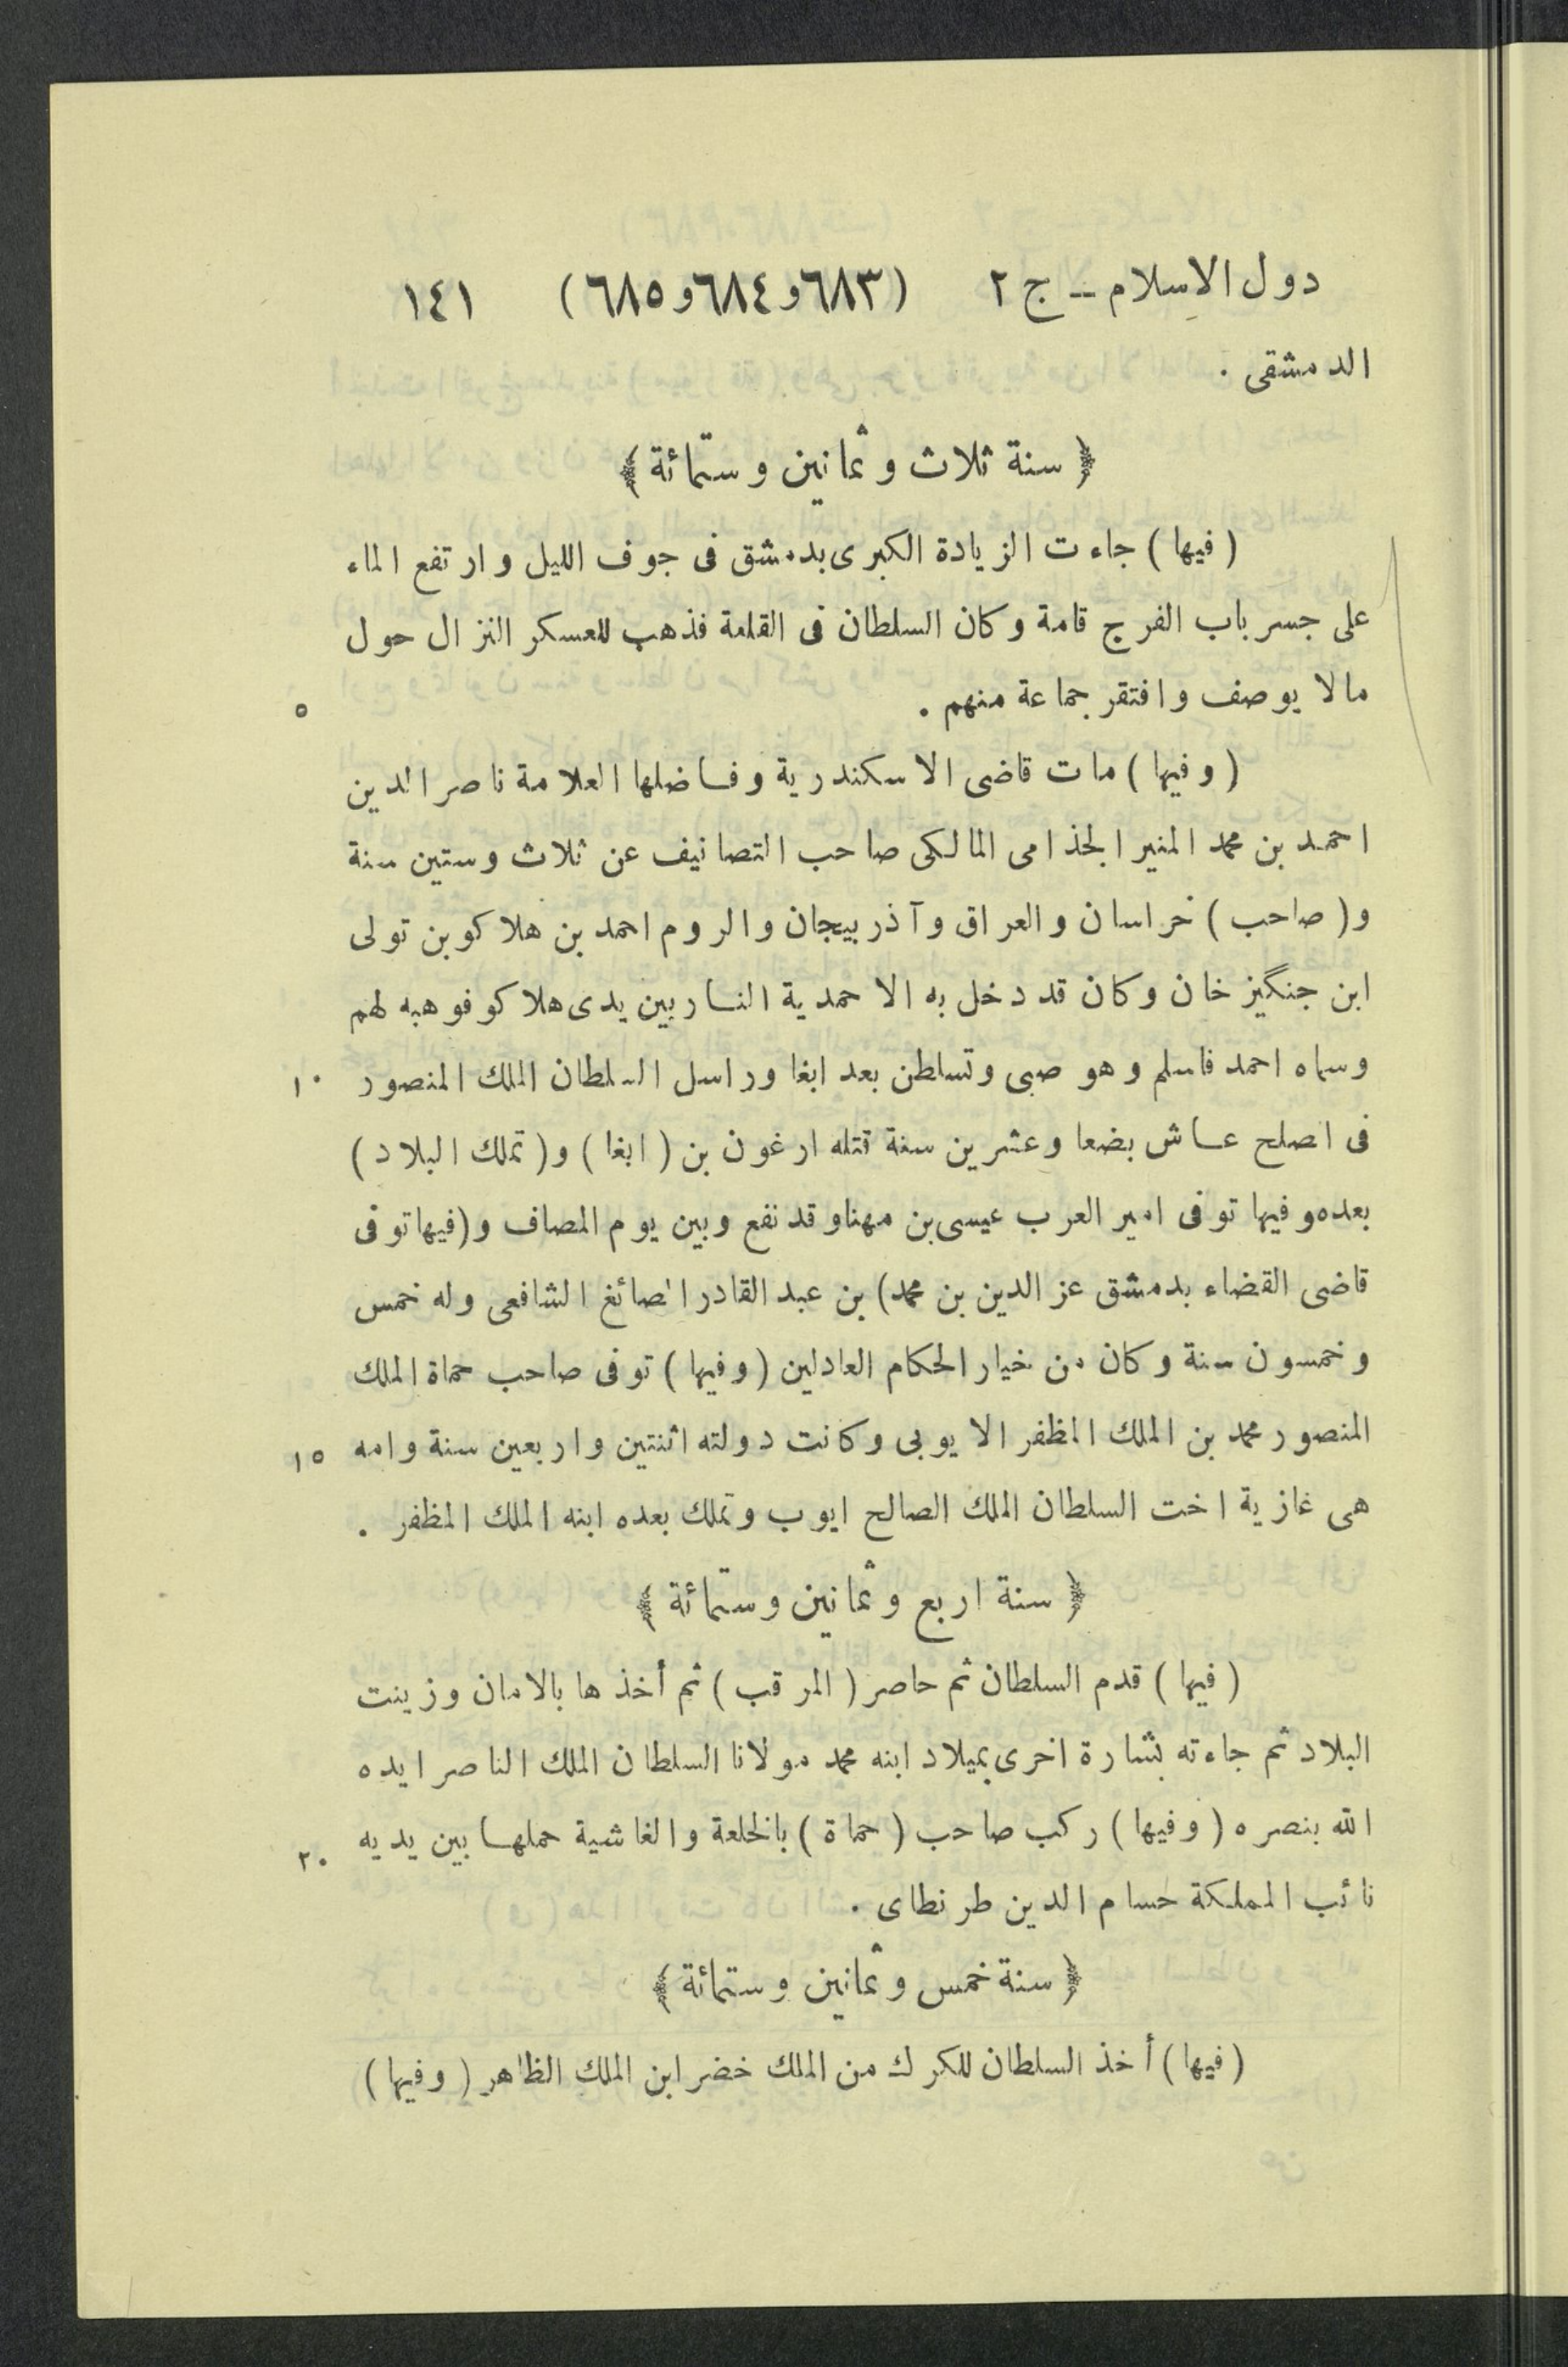 دول الاسلام ــ ج ٢ (٦٨٣و٦٨٤و٦٨٥) ١٤١
الدمشقى .
﴿ سنة ثلاث وثمانين وستمائة ﴾
( فيها ) جاءت الزيادة الكبرى بدمشق فى جوف الليل وارتفع الماء
على جسر باب الفرج قامة وكان السلطان فى القلعة فذهب للعسكر النزال حول
مالا يوصف وافتقر جماعة منهم . ٥
( وفيها ) مات قاضى الاسكندرية وفاضلها العلامة ناصر الدين
احمد بن محمد المنير الجذامى المالكى صاحب التصانيف عن ثلاث وستين سنة
و( صاحب ) خراسان والعراق وآذربيجان والروم احمد بن هلاكو بن تولى
ابن جنگيز خان وكان قد دخل به الاحمدية النار بين يدى هلاكو فوهبه لهم
وسماه احمد فاسلم وهو صبى وتسلطن بعد ابغا وراسل السلطان الملك المنصور ١٠
فى الصلح عاش بضعا وعشرين سنة قتله ارغون بن ( ابغا ) و( تملك البلاد )
بعده وفيها توفى امير العرب عيسى بن مهنا وقد نفع وبين يوم المصاف و(فيها توفى
قاضى القضاء بدمشق عز الدين بن محمد) بن عبد القادر الصائغ الشافعى وله خمس
وخمسون سنة وكان من خيار الحكام العادلين ( وفيها ) توفى صاحب حماة الملك
المنصور محمد بن الملك المظفر الايوبى وكانت دولته اثنتين واربعين سنة وامه ١٥
هى غازية اخت السلطان الملك الصالح ايوب وتملك بعده ابنه الملك المظفر .
﴿ سنة اربع وثمانين وستمائة ﴾
( فيها ) قدم السلطان ثم حاصر ( المرقب ) ثم أخذها بالامان وزينت
البلاد ثم جاءته بشارة اخرى بميلاد ابنه محمد مولانا السلطان الملك الناصر ايده
الله بنصره ( وفيها ) ركب صاحب ( حماة ) بالخلعة والغاشية حملها بين يديه ٢٠
نائب المملكة حسام الدين طرنطاى .
﴿ سنة خمس وثمانين وستمائة ﴾
( فيها ) أخذ السلطان للكرك من الملك خضر ابن الملك الظاهر ( وفيها )